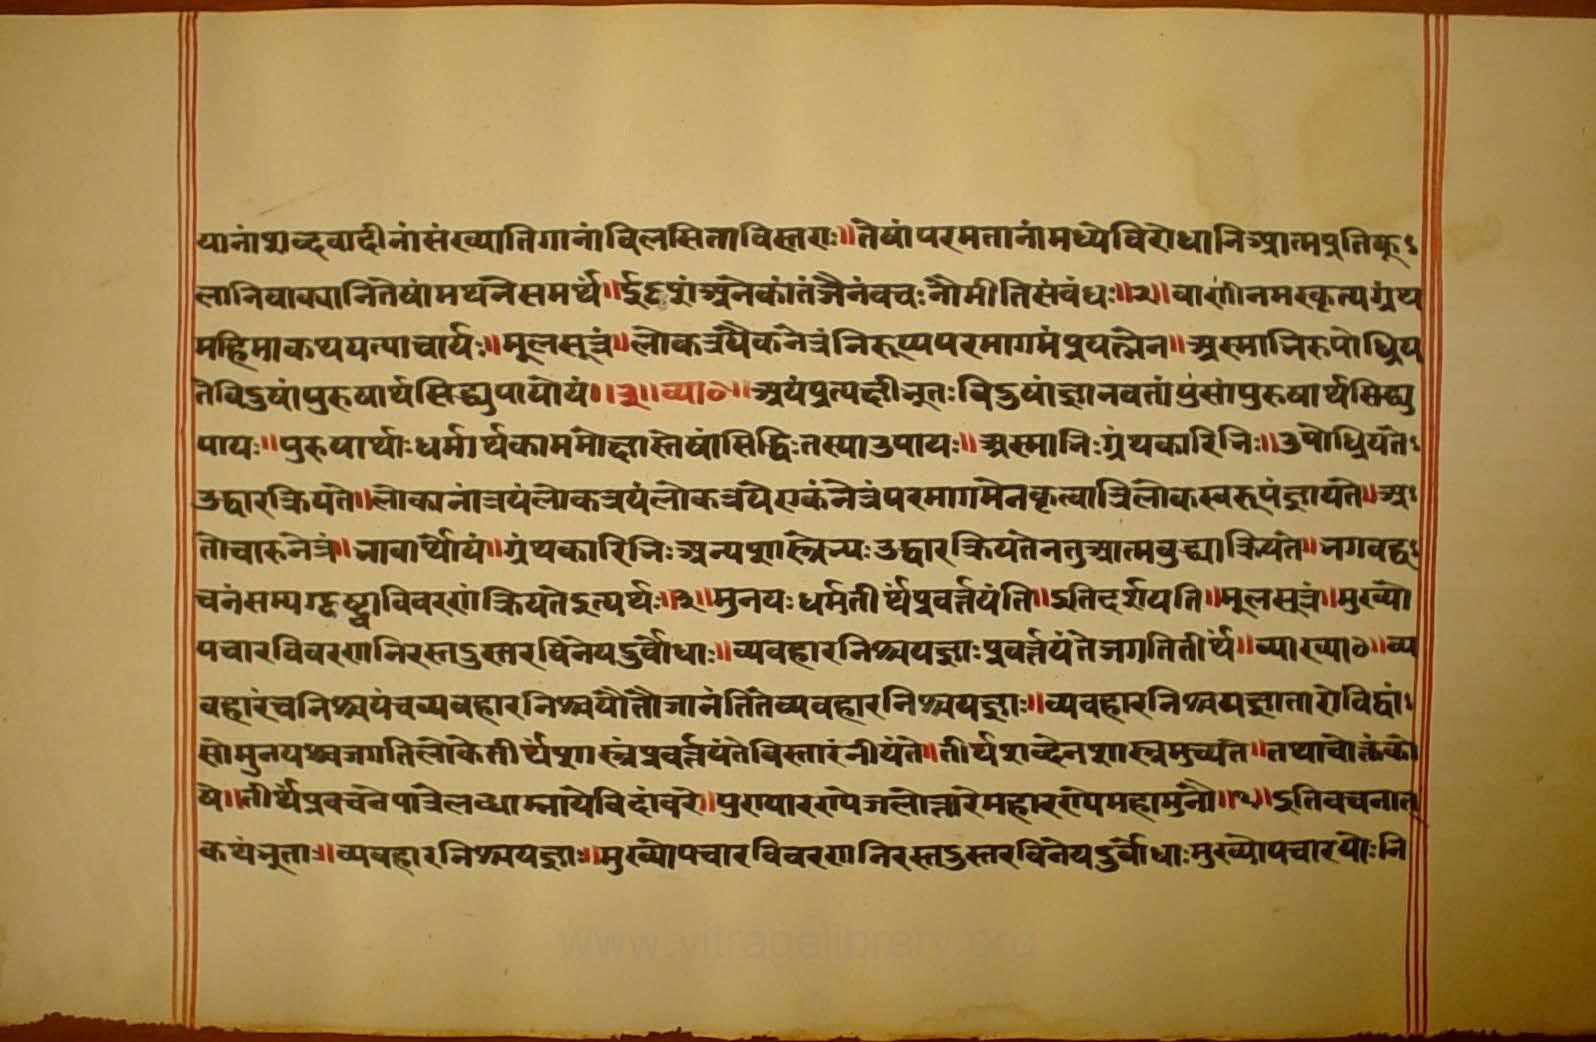 यानांशब्दवादीनांसंख्यातिगानांविलसिताविस्तराः॥तेषांपरमतानांमध्येविरोधानिआत्मप्रतिकू
लानिवाक्यानितेषांमथनेसमर्थं॥ईदृशंअनेकांतंजैनंवचःनौमीतिसंबंधः॥२॥वाणींनमस्कृत्यग्रंथ
महिमाकथयत्याचार्यः॥मूलसूत्रं॥लोकत्रयैकनेत्रंनिरूप्यपरमागमंप्रयत्नेन॥अस्माभिरुपोध्रिय
तेविदुषांपुरुषार्थसिद्ध्युपायोयं॥३॥व्या०॥अयंप्रत्यक्षीभूतःविदुषांज्ञानवतांपुंसांपुरुषार्थसिद्ध्यु
पायः॥पुरुषार्थाःधर्मार्थकाममोक्षास्तेषांसिद्धिःतस्याउपायः॥अस्माभिःग्रंथकारिभिः॥उपोध्रियते
उद्धारक्रियते॥लोकानांत्रयंलोकत्रयंलोकत्रयेएकंनेत्रंपरमागमेनकृत्वात्रिलोकस्वरूपंज्ञायते॥अ
तोचारुनेत्रं॥भावार्थोयं॥ग्रंथकारिभिःअन्यशास्त्रेभ्यःउद्धारक्रियतेनतुआत्मबुद्ध्याक्रियते॥भगवद्व
चनंसम्यग्दृष्ट्वाविवरणंक्रियतेइत्यर्थः॥३॥मुनयःधर्मतीर्थंप्रवर्त्तयंति॥इतिदर्शयति॥मूलसूत्रं॥मुख्यो
पचारविवरणनिरस्तदुस्तरविनेयदुर्बोधाः॥व्यवहारनिश्चयज्ञाःप्रवर्त्तयंतेजगतितीर्थं॥व्याख्या०॥व्य
वहारंचनिश्चयंचव्यवहारनिश्चयौतौजानंतितेव्यवहारनिश्चयज्ञाः॥व्यवहारनिश्चयज्ञातारोविद्वां
सोमुनयश्चजगतिलोकेतीर्थंशास्त्रंप्रवर्त्तयंतेविस्तारंनीयंते॥तीर्थशब्देनशास्त्रमुच्यते॥तथाचोक्तंको
षे॥तीर्थंप्रवचनेपात्रेलब्धाम्नायेविदांवरे॥पुण्यारण्येजलोत्तारेमहारण्येमहामुनौ॥१॥इतिवचनात्
कथंभूताः॥व्यवहारनिश्चयज्ञाः॥मुख्योपचारविवरणनिरस्तदुस्तरविनेयदुर्बोधाःमुख्योपचारयोःनि
www.vitragelibrary.org